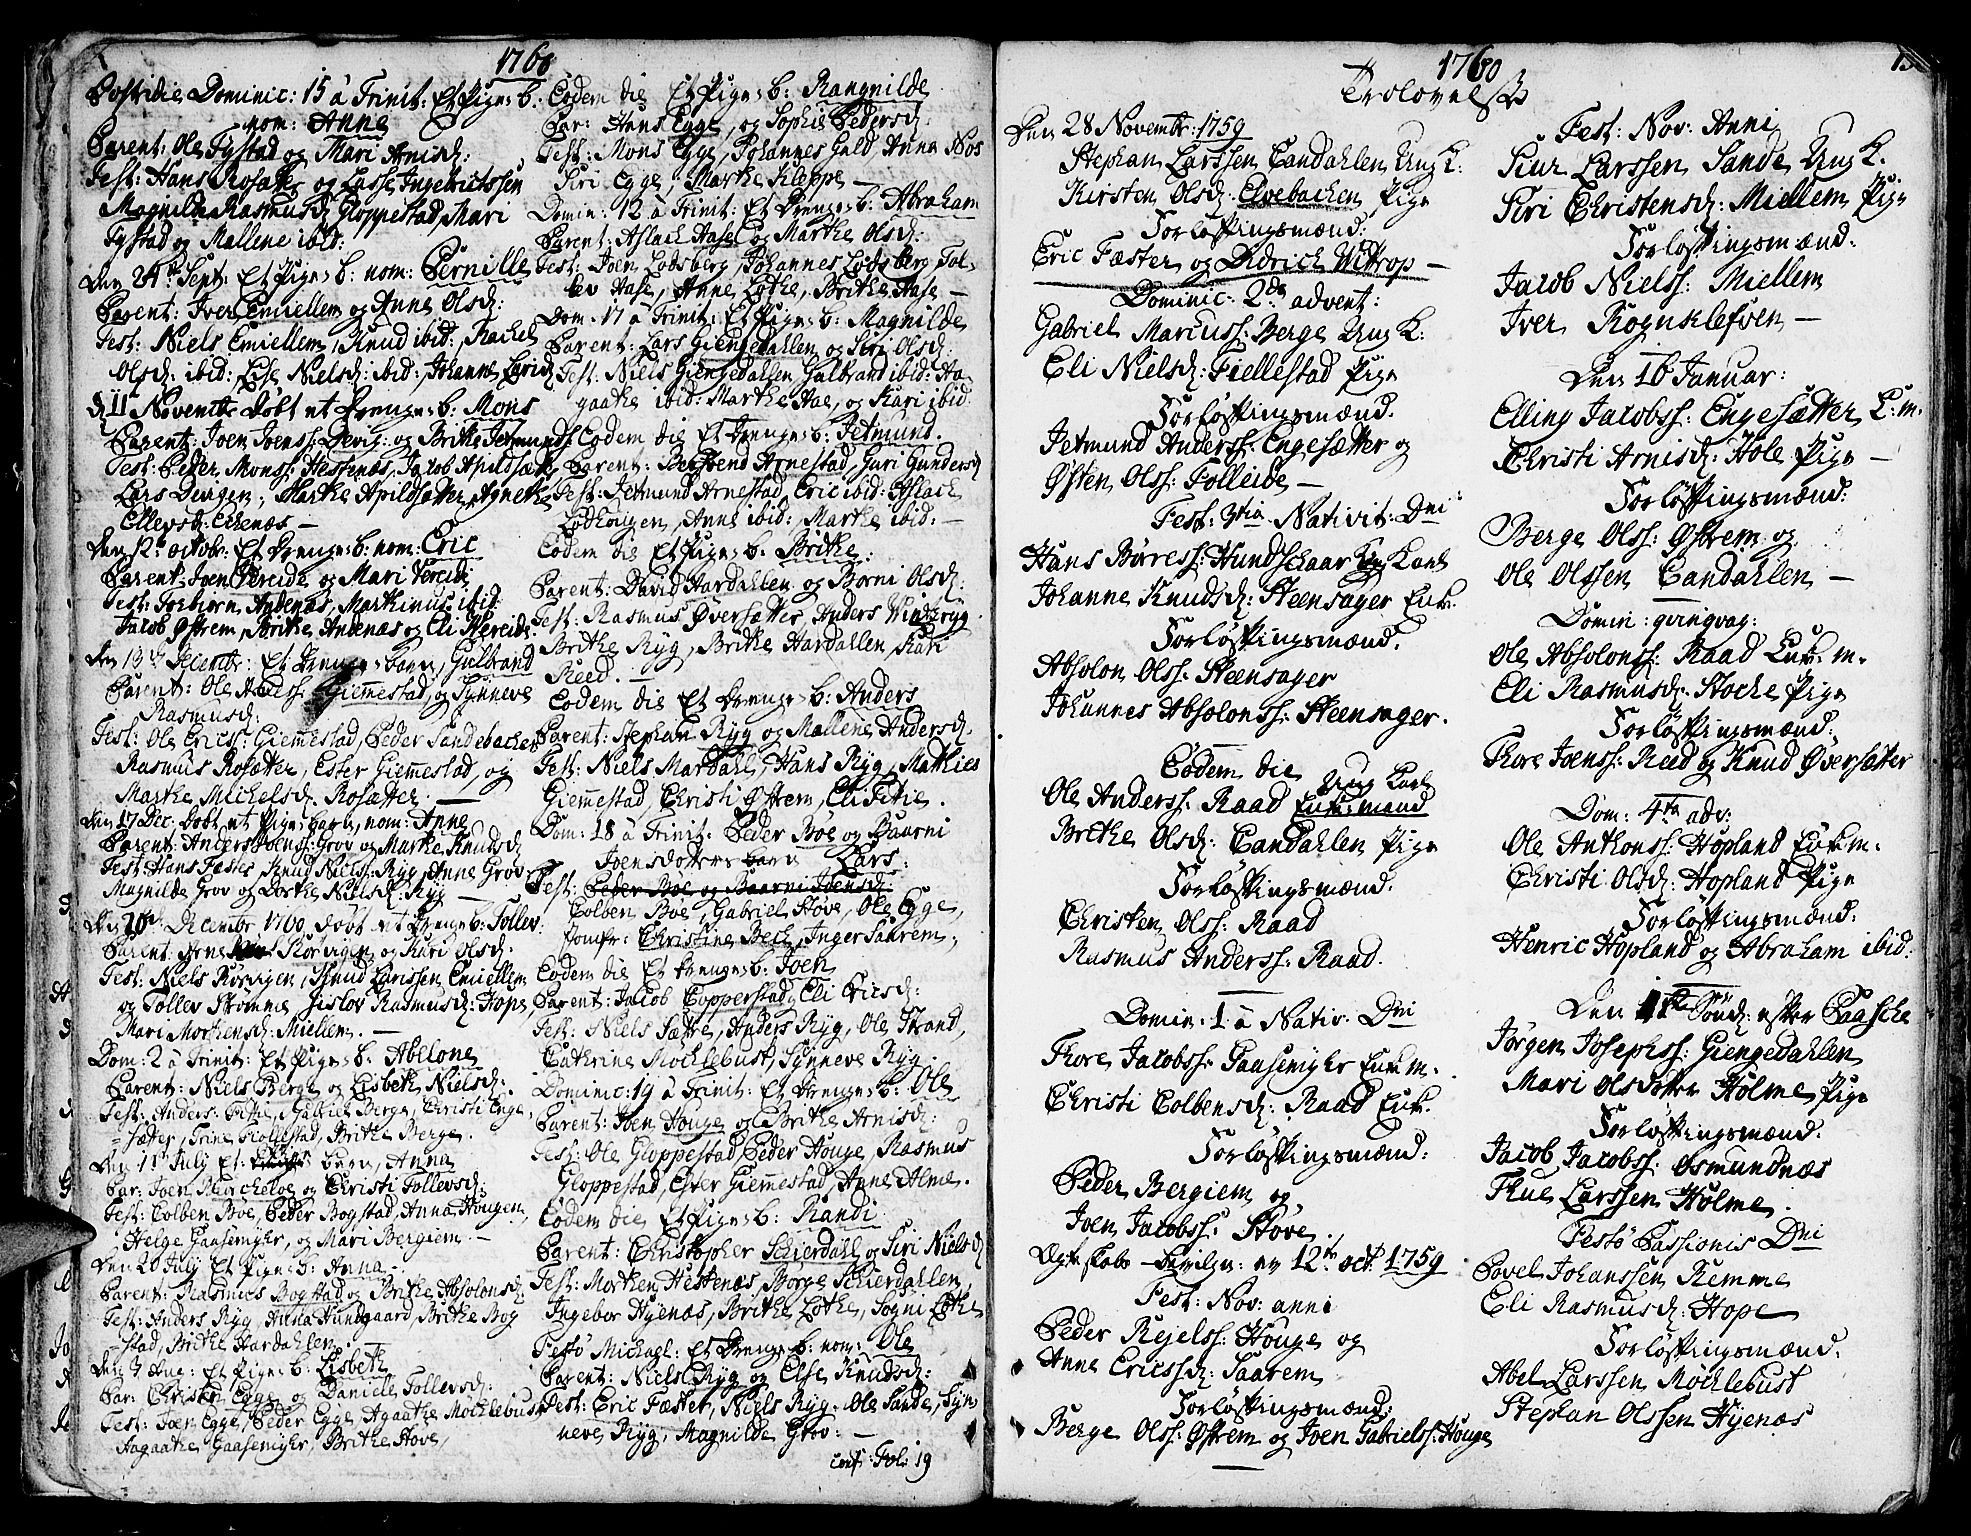 1760
Postridie Dominic: 15 à Trinit: Et Pige b:
nom: Anne
Parent: Ole Tystad og Mari Arnisd:
Test: Hans Rosætter og Lasse Ingebrictssen
Magnilde Rasmusd: Gloppestad, Mari
Tystad og Mallene ibid:
Den 24de Sept: Et Pige b: nom: Pernille
Parent: Iver Emiellem og Anne Olsd:
Test: Niels Emiellem, Knud ibid: Rachel
Olsd: ibid: Else Nielsd: ibid: Johanne Larsd:
d. 11 Novembr: döbt et Drenge b: Mons
Parent: Joen Joenss: Devig: og Brithe Jetmundsd:
Test: Peder Monss: Hestenæs, Jacob Apildsætter
Lars Devigen, Marthe Apildsætter, Agnethe
Ellevsd: Eikenæs —
Den 12te octobr: Et Drenge b: nom: Eric
Parent: Joen Vereide og Mari Vereide
Test: Torbiorn Andenæs, Marthinus ibid:
Jacob Østrem, Brithe Andenæs og Eli Vereide
Den 13de Decembr: Et Drenge barn, Gulbrand
Parent: Ole Anderss: Giemmestad, og Synneve
Rasmusd:
Test: Ole Ericss: Giemmestad, Peder Sandebachen
Rasmus Rosætter, Ester Giemmestad, og
Marthe Michelsd: Rosætter. —
Den 17 Dec: döbt et Pige barn, nom: Anne
Parent: Anders Joenss: Grov og Marthe Knudsd:
Test: Hans Fæster, Knud Nielss: Ryg, Anne Grov
Magnilde Grov og Dorthe Nielsd: Ryg —
Den 20de Decembr 1760 döbt et Drenge b: Tollev
Parent: Arne Rörvigen og Kari Olsd:
Test: Niels Rörvigen, Knud Larssen Emiellem
og Tollev Stömne, Gislov Rasmusd: Hope
Mari Mortensd: Miellem. —
Dom: 2 à Trinit: Et Pige b: Abelone
Parent: Niels Berge og Lisbeth Nielsd:
Test: Anders Berge, Gabriel Berge, Christi Enge
sætter, Trine Fiellestad, Brithe Berge.
Den 11te Julij Et Pige barn, Anna
Par: Joen Murcheloe og Christi Tollevsd:
Test: Colben Böe, Peder Bogstad, Anna Hougen
Helge Gaasemyhr, og Mari Bergiem. —
Den 20 Julij Et Pige b: Anna
Parent: Rasmus Bogstad og Brithe Absolonsd:
Test: Anders Ryg, Anna Hundsgaard, Brithe Bog
stad, Brithe Hardahlen
Den 3 Aug: Et Pige b: Lisbeth
Par: Christen Egge og Daniele Tollevsd:
Test: Joen Egge, Peder Egge, Agaathe Möchlebust
Aagaathe Gaasemyhr, Brithe Hove,
Eodem die Et Pige b: Rangnilde
Par: Hans Egge, og Sophie Pedersd:
Test: Mons Egge, Johannes Hald, Anna Nos
Siri Egge, Marthe Kleppe —
Domin: 12 à Trinit: Et Drenge b: Abraham
Parent: Aslach Aase og Marthe Olsd:
Test: Joen Lodsberg, Johannes Lodsberg, Tol-
lev Aase, Anne Lothe, Brithe Aase —
Dom: 17 à Trinit: Et Pige b: Magnilde
Parent: Lars Giengedahlen og Siri Olsd:
Test: Niels Giengedahlen, Gulbrand ibid: Aa-
gaathe ibid: Marthe Aae, og Kari ibid:
Eodem die Et Drenge b: Jetmund.
Parent: Bersvend Arnestad, Guri Gundersd:
Test: Jetmund Arnestad, Eric ibid: Aslach
Lodhougen, Anne ibid:, Marthe ibid: —
Eodem die Et Pige b: Brithe:
Parent: David Hardahlen og Borni Olsd:
Test: Rasmus Øversætter, Anders Winteryg
Brithe Ryg, Brithe Hardahlen, Kari
Reed. —
Eodem die Et Drenge b: Anders
Parent: Stephan Ryg og Mallene Andersd:
Test: Niels Mardahl, Hans Ryg, Mathies
Giemmestad, Christi Østrem, Eli Fitie.
Dom: 18 à Trinit: Peder Böe og Baarni
Joensdotters barn Lars:
Test: Peder Böe og Baarni Joensd:
Colben Böe, Gabriel Höve, Ole Egge,
Jomfr: Christine Bech, Inger Saarem,
Eodem die Et Drenge b: Joen
Parent: Jacob Copperstad, Eli Ericsd:
Test: Niels Sætte, Anders Ryg, Ole Strand,
Cathrine Möchlebust, Synneve Ryg.
Dominic: 19 à Trinit: Et Drenge b: Ole
Parent: Joen Houge og Brithe Arnisd:
Test: Ole Gloppestad, Peder Houge, Rasmus
Gloppestad, Ester Giemmestad, Anne Alme.
Eodem die Et Pige b: Randi
Parent: Christopher Schierdahl og Siri Nielsd:
Test: Morten Hestenæs, Börge Schierdahlen,
Ingebor Hyenæs, Brithe Lothe, Sogni Lothe
Festö Michael: Et Drenge b: nom: Ole
Parent: Niels Ryg og Else Knudsd:
Test: Eric Fæster, Niels Ryg, Ole Sande, Syn
neve Ryg, Magnilde Grov: —
conf: Fol: 19
1760
Trolovelser
Den 28 Novembr: 1759
Stephan Larssen Candahlen Ung K:
Kirsten Olsd: Elvebachen Pige
Forlöftningsmænd:
Eric Fæster og Didrich Wittrop —
Dominic: 2da advent:
Gabriel Marcuss: Berge Ung K:
Eli Nielsd: Fiellestad Pige
Forlöftningsmænd.
Jetmund Anderss: Engesætter og
Østen Olss: Folleide —
Fest: 3tia Nativit: Dni
Hans Börress: Hundschaar Ung Karl
Johanne Knudsd: Steensager Enk.
Forlöftningsmænd.
Absolon Olss: Steensager
Johannes Absolonss: Steensager.
Eodem die
Ung Karl
Ole Anderss: Raad Enkemand
Brithe Olsd: Candahlen Pige
Forlöftningsmænd.
Christen Olss: Raad
Rasmus Anderss: Raad.
Domin: 1 à Nativ: Dni
Thore Jacobss: Gaasemyhr Enk m.
Christi Colbensd: Raad Enk.
Forlöftningsmænd:
Peder Bergiem og
Joen Jacobss: Höve.
Ægteskabs Bevilgn: av 12te octr 1759
Fest: Nov: anni
Peder Rejelss: Houge og
Anne Ericssd: Saarem
Forlöftningsmænd:
Berge Olss: Østrem og Joen Gabrielss: Houge
Fest: Nov: Anni
Siur Larssen Sande Ung K.
Siri Christensd: Miellem Pige
Forlöftningsmænd:
Jacob Nielss: Miellem
Iver Rognklefven —
Den 16 Januar:
Elling Jacobss: Engesætter E: m.
Christi Arnisd: Hole Pige —
Forlöftningsmænd:
Berge Olss: Østrem og
Ole Olssen Candahlen —
Domin: qvinqvag:
Ole Absolonss: Raad Enk: m.
Eli Rasmusd: Stocke Pige
Forlöftningsmænd:
Thore Joenss: Reed og Knud Øversætter
Dom: 4ta adv:
Ole Anthonss: Hopland Enk m.
Christi Olsd: Hopland Pige
Forlöftningsmænd:
Henric Hopland og Abraham ibid:
Den 1ste Sönd: efter Paasche
Jörgen Josephss: Giengedahlen
Mari Olsdotter Holme Pige
Forlöftningsmænd:
Jacob Jacobss: Osmundnæs
Thue Larssen Holme.
Festö Passionis Dni
Povel Johanssen Remme
Eli Rasmusd: Hope
Forlöftningsmænd:
Abel Larssen Möchlebust
Stephan Olssen Hyenæs